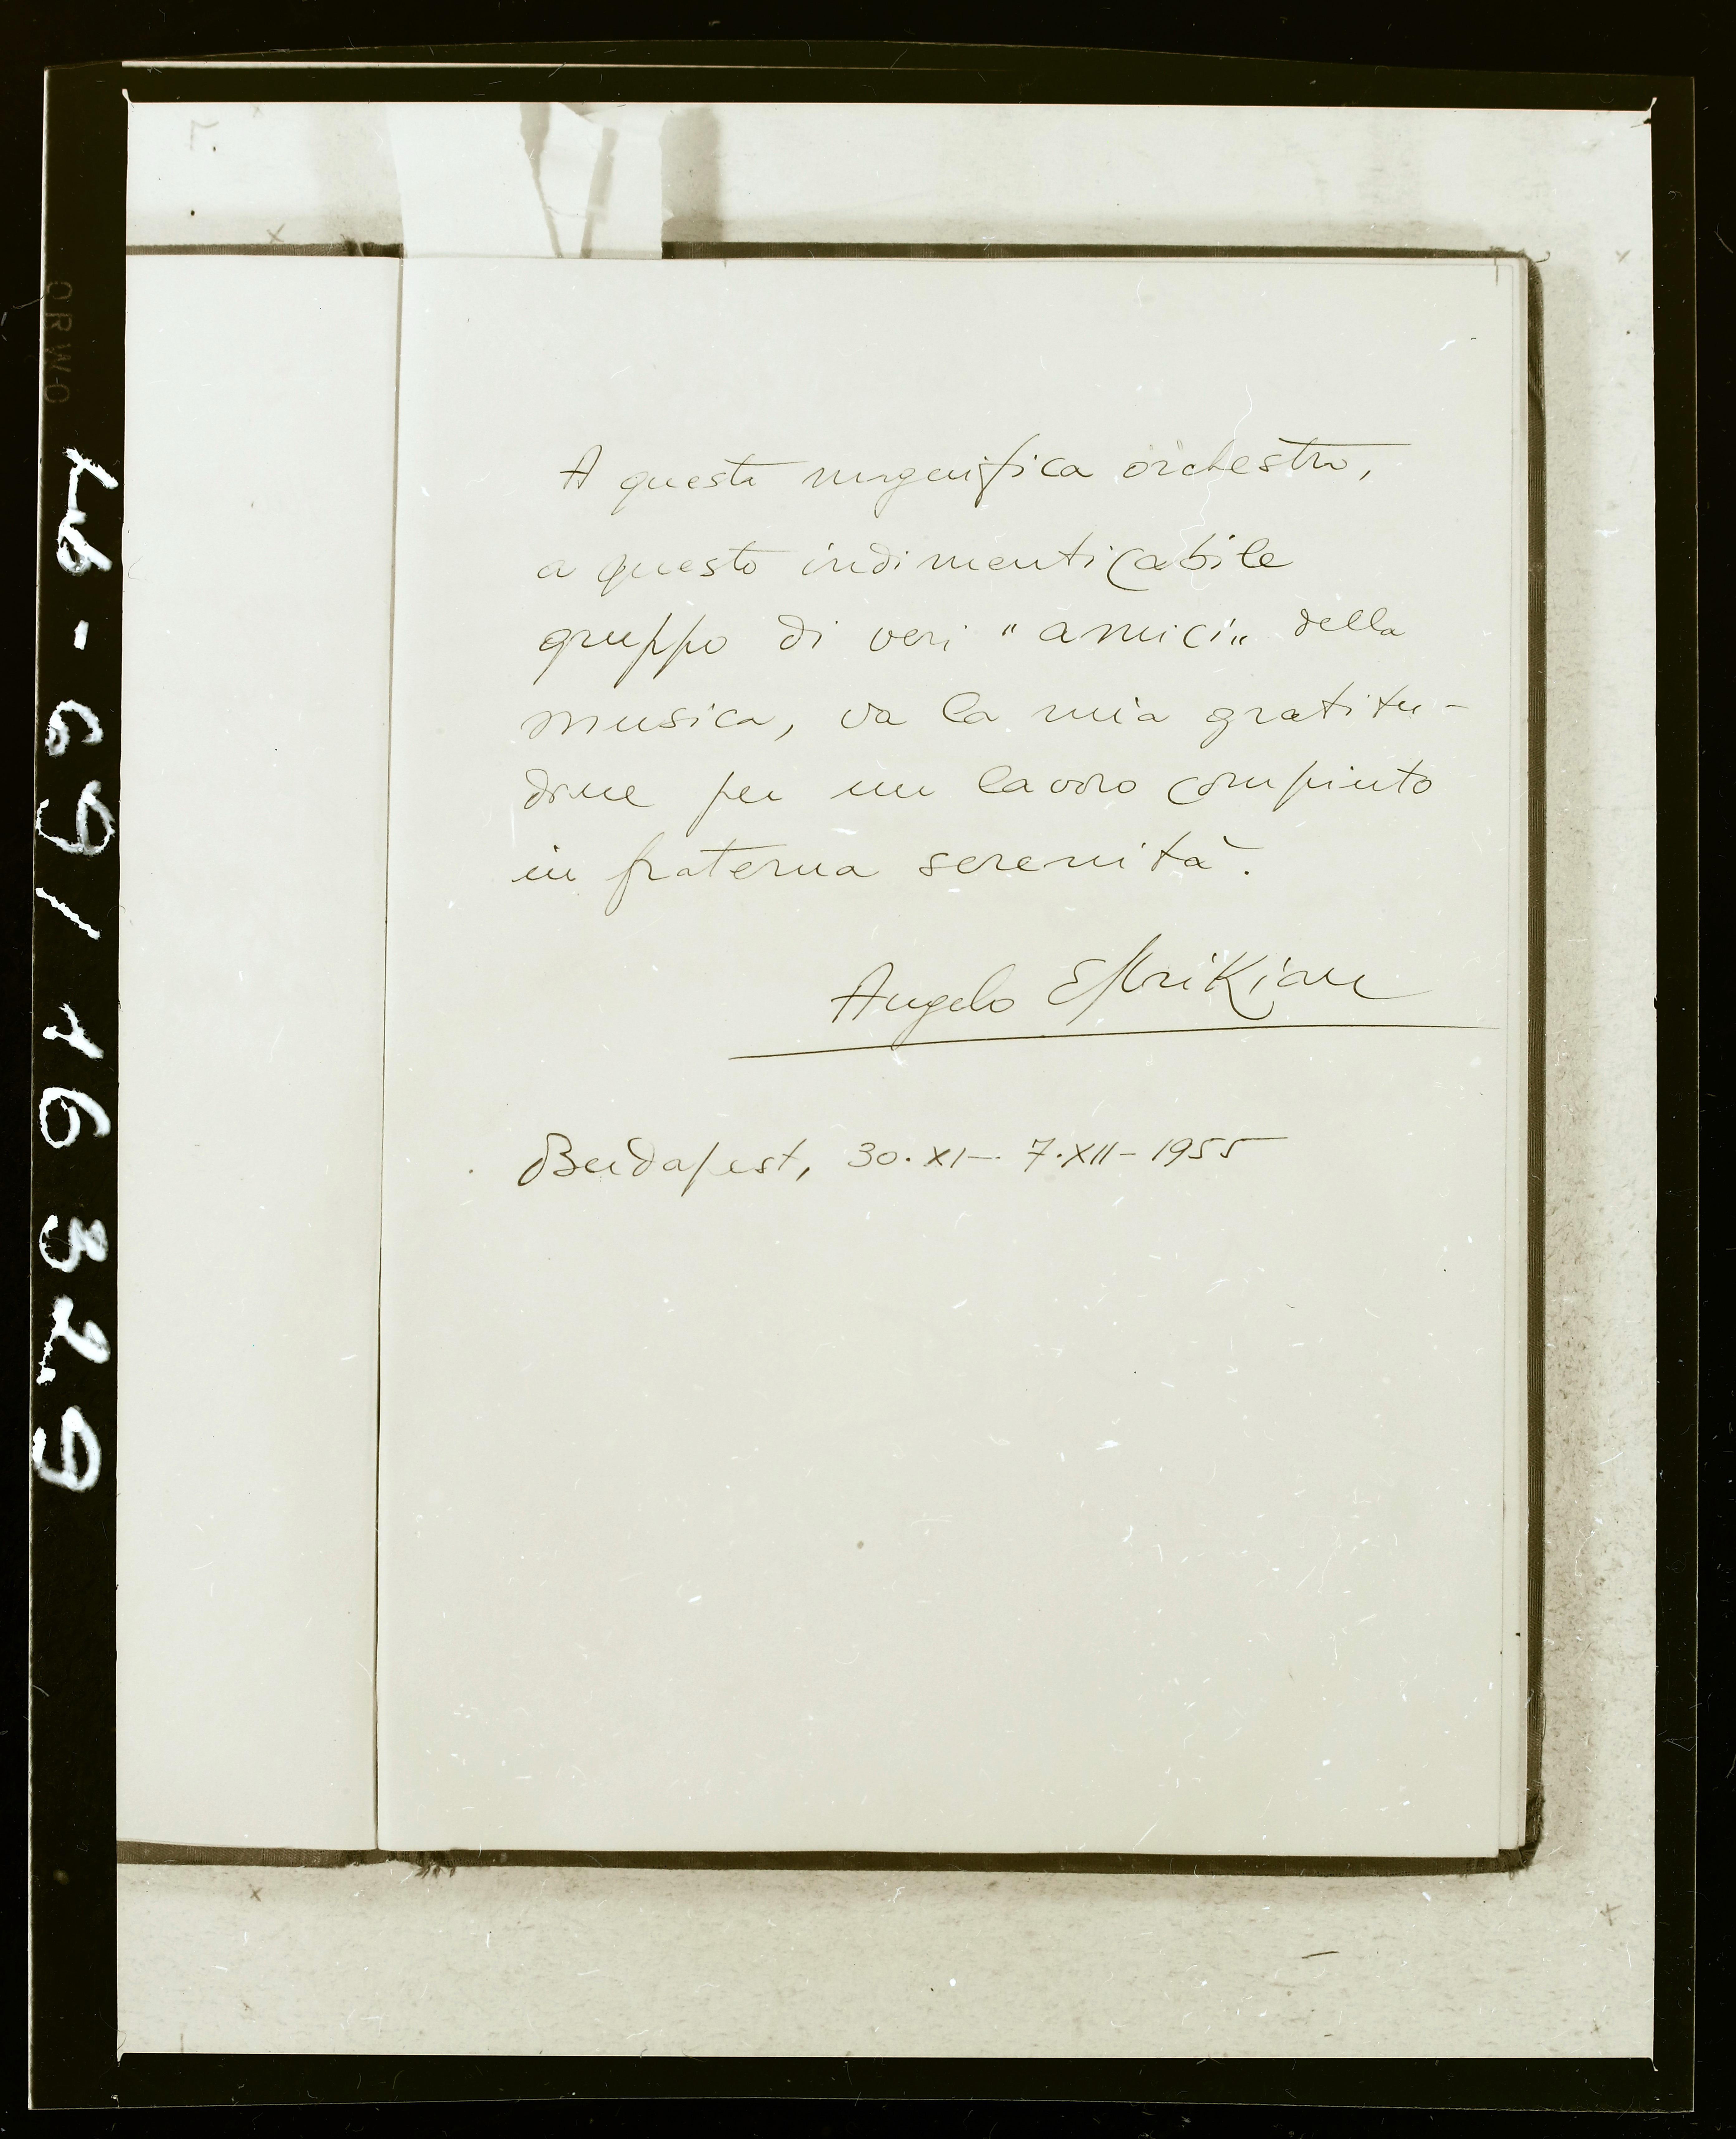 A questa magnifica orchestra,
a questo indimenticabile
gruppo di veri "amici" della
musica, va la mia gratitu-
dine per un lavoro compiuto
in fraterna serenità.
Angelo Ephrikian
Budapest, 30.XI-7.XII-1955
ORWO